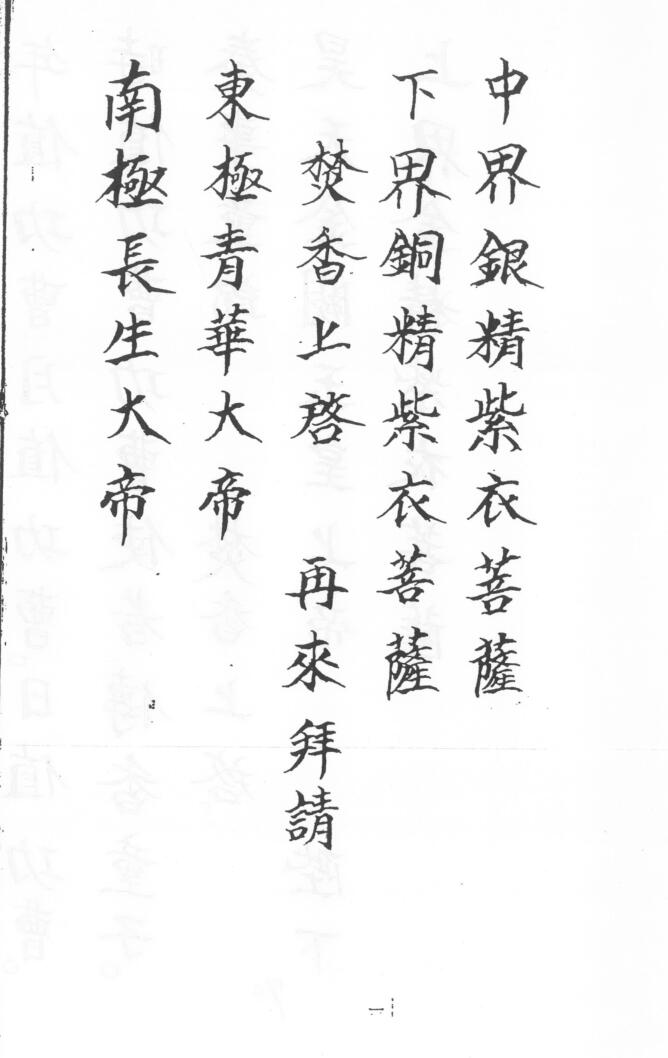 中界銀精紫衣菩薩
下界銅精紫衣菩薩
焚香上啓　再來拜請
東極青華大帝
南極長生大帝
一